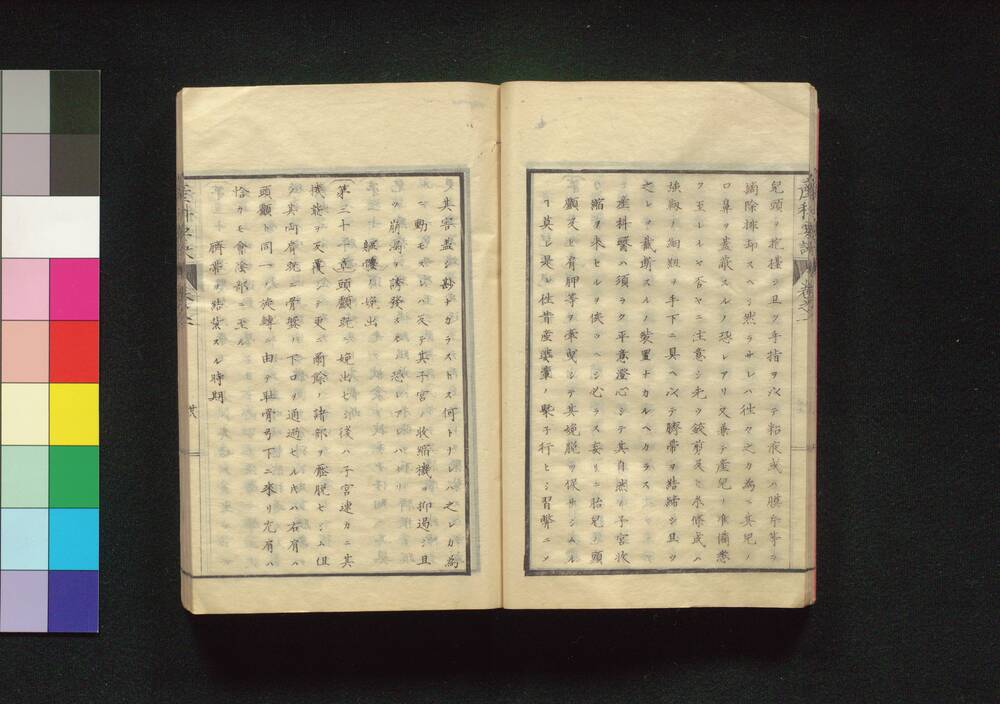 兒頭ヲ抱擡シ且ツ手指ヲ以テ粘液或ハ膜片等ヲ
摘除掃却スヘシ然ラサレハ往々之カ為ニ其兒ノ
口鼻ヲ蓋蔽スルノ恐レアリ又兼テ産兒ノ準備悉
ク至レルヤ否ヤニ注意シ先ツ鋏剪及ヒ糸條或ハ
強靱ノ細紐ヲ手下ニ具ヘ以テ臍帶ヲ結縛シ且ツ
之レヲ截斷スルノ裝置ナカルヘカラス
産科醫ハ須ラク平意澄心シテ其自然ノ子宮收
縮ヲ来セルヲ俟ツヘシ必ラス妄リニ胎兒ノ頭
顱及ヒ肩胛等ヲ牽曳シテ其娩脱ヲ保サシムル
莫レ是レ往昔産婆輩ノ擧テ行ヒシ習弊ニメ
其害蓋シ尠ナカラストス何トナレハ之レカ為
メニ動モスレハ反テ其子宮ノ收縮機ヲ抑遏シ且
ツ崩漏ヲ誘發スルノ恐レアレハナリ
軀幹ノ娩出
(第三十一章)頭顱既ニ娩出セシ後ハ子宮速カニ其
機能ヲ反覆シテ更ニ爾餘ノ諸部ヲ壓脱セシム但
其両肩既ニ骨盤ノ下口ヲ通過セル片ハ右肩ハ
頭顱ト同一ノ旋轉ニ由テ耻骨弓下ニ来リ左肩ハ
恰カモ會陰部ニ至ル
臍帶ヲ結紮スル時期
産科
卷之一